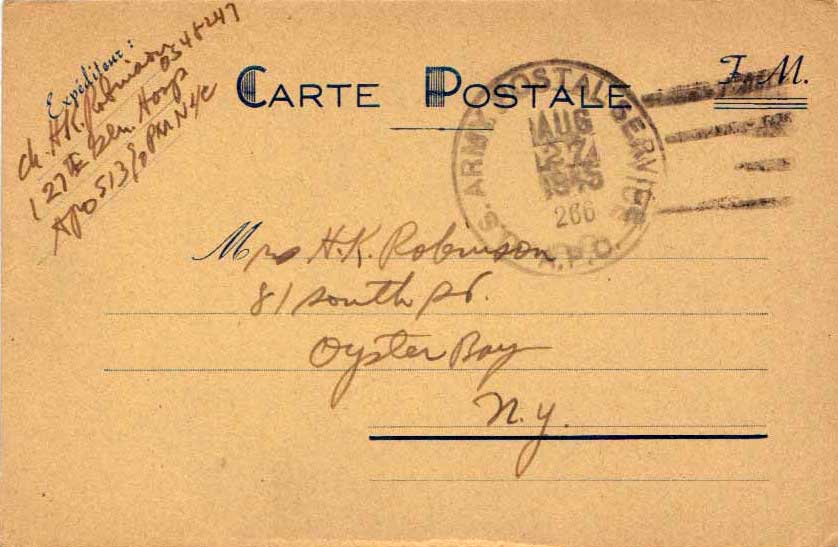 Expéditeur :
Ch. H.K. Robinson
0548247
127th Gen. Hosp
APO 513 c/o PM NYC
CARTE POSTALE
F. M.
U.S. ARMY POSTAL SERVICE
AUG
27
1945
266
A.P.O.
Mrs H.K. Robinson
81 South St.
Oyster Bay
N.Y.